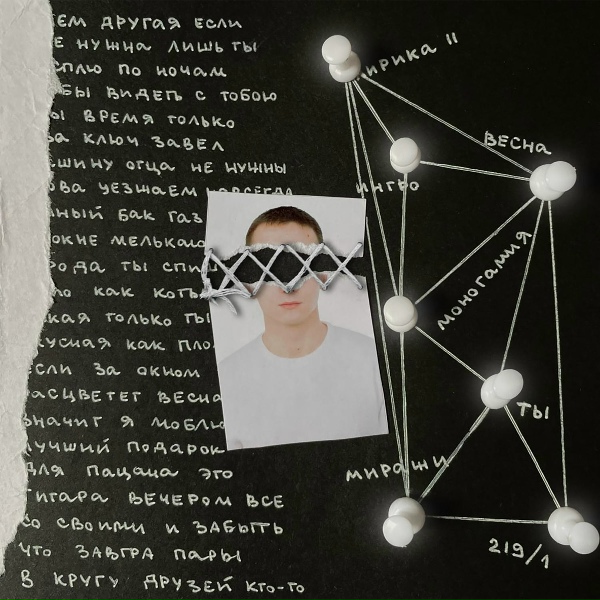 ЕМ ДРУГАЯ ЕСЛИ
Е НУЖНА ЛИШЬ ТЫ
СПЛЮ ПО НОЧАМ
БЫ ВИДЕТЬ С ТОБОЮ
Ы ВРЕМЯ ТОЛЬКО
ЗА КЛЮЧ ЗАВЕЛ
ШИНУ ОТЦА НЕ НУЖНЫ
ОВА УЕЗЖАЕМ НАВСЕГДА
НЫЙ БАК ГАЗ
ОКНЕ МЕЛЬКАЮ
РОДА ТЫ СПИШ
ЛО КАК КОТЬ
КАЯ ТОЛЬКО ТЫ
КУСНАЯ КАК ПЛО
ЕСЛИ ЗА ОКНОМ
РАСЦВЕТЕТ ВЕСНА
ЗНАЧИТ Я МОБЛЮ
ЛУЧШИЙ ПОДАРОК
ДЛЯ ПАЦАНА ЭТО
ГИТАРА ВЕЧЕРОМ ВСЕ
СО СВОИМИ И ЗАБЫТЬ
ЧТО ЗАВТРА ПАРЫ
В КРУГУ ДРУЗЕЙ КТО-ТО
ИРИКА II
ВЕСНА
ИНТРО
МОНОГАМИЯ
ТЫ
МИРАЖИ
219/1